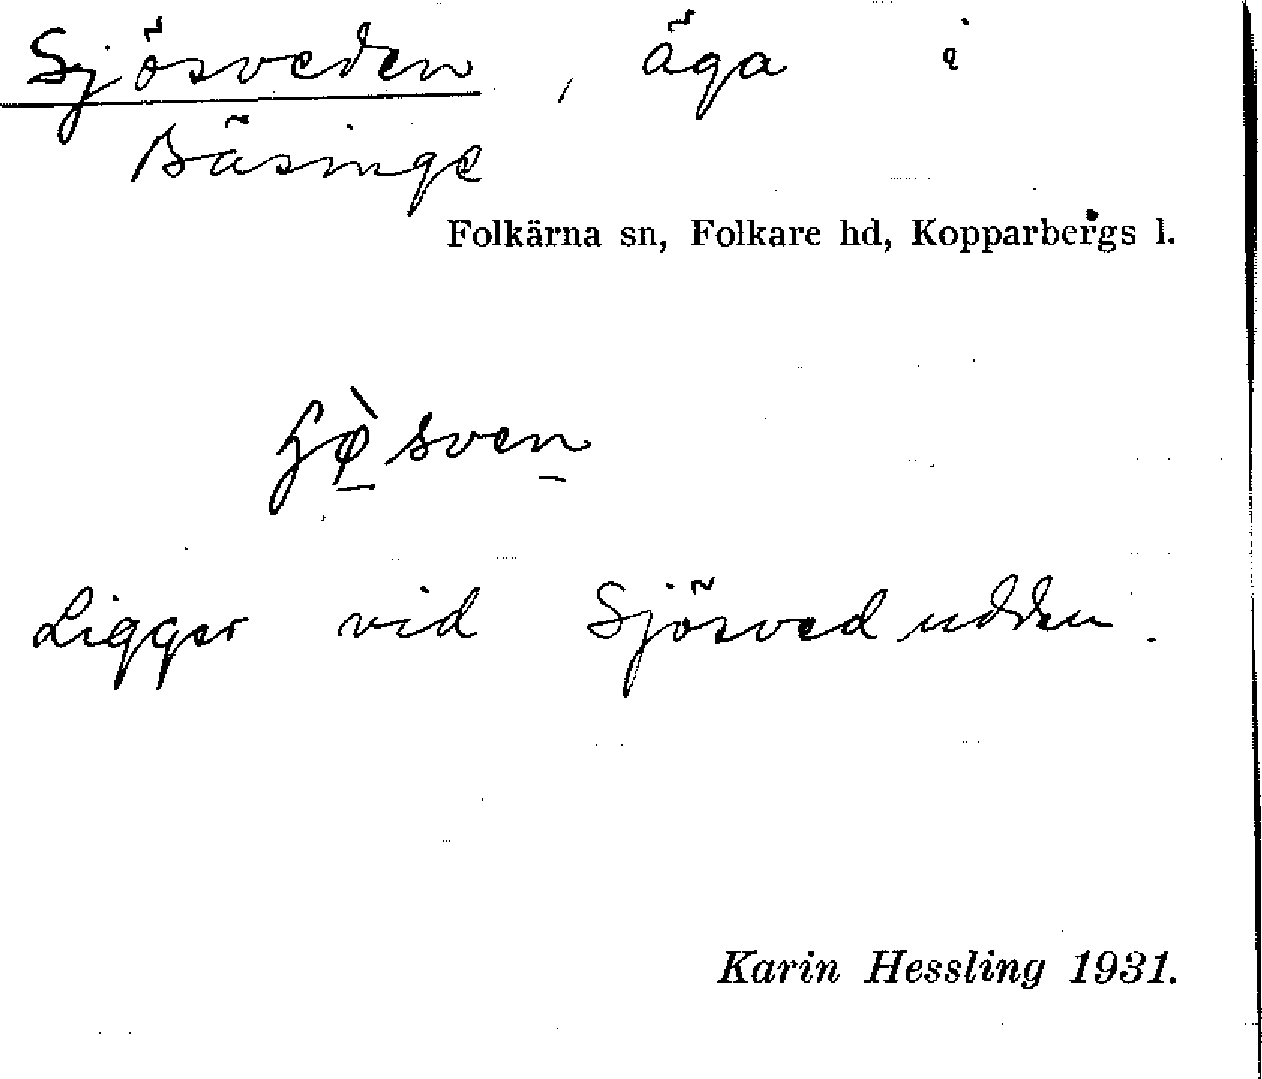 Sjösveden, äga i
Bäsinge
Folkärna sn, Folkare hd, Kopparbergs l.
Ligger vid Sjösvedudden.
Karin Hessling 1931.